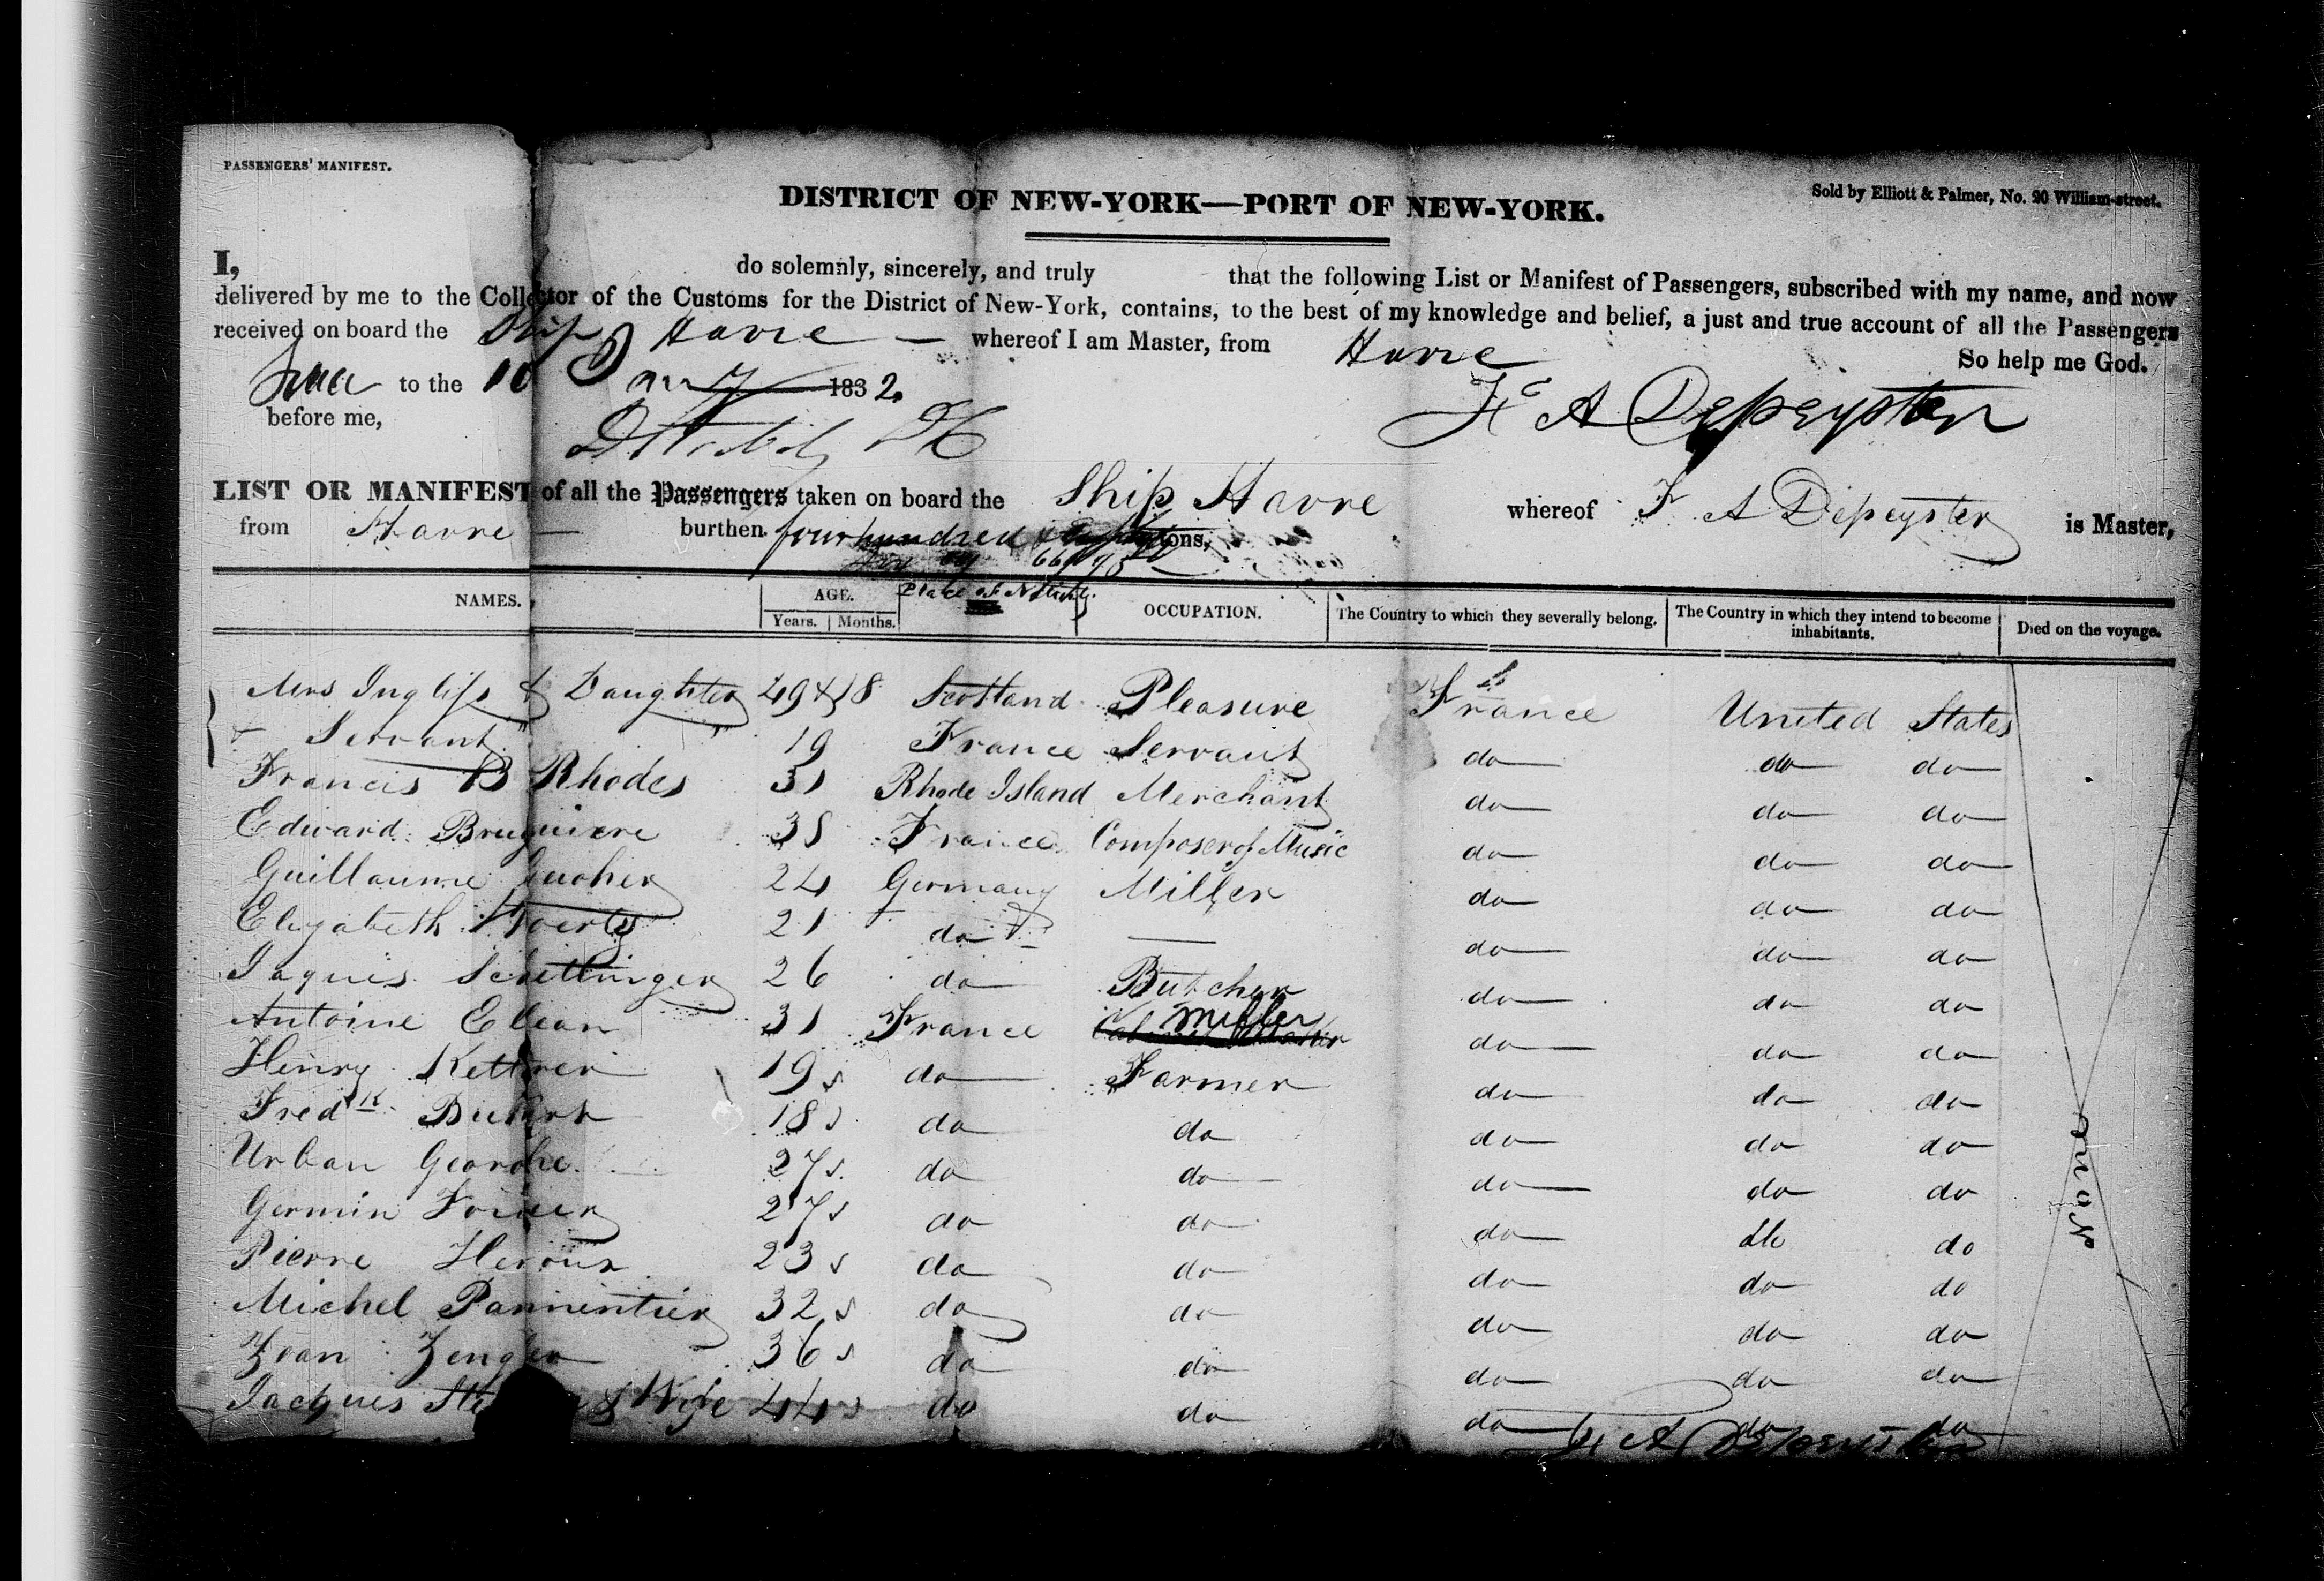 PASSENGERS' MANIFEST.
DISTRICT OF NEW-YORK—PORT OF NEW-YORK.
Sold by Elliott & Palmer, No. 20 William-street.
I, do solemnly, sincerely, and truly that the following List or Manifest of Passengers, subscribed with my name, and now
delivered by me to the Collector of the Customs for the District of New-York, contains, to the best of my knowledge and belief, a just and true account of all the Passengers
received on board the Ship Havre — whereof I am Master, from Havre
So help me God.
to the 10 1832.
before me,
F A Depeyster
LIST OR MANIFEST of all the Passengers taken on board the Ship Havre whereof F A Depeyster is Master,
from Havre — burthen four hundred & tons,
NAMES. AGE. Years. Months. Place of Nativity. OCCUPATION. The Country to which they severally belong. The Country in which they intend to become inhabitants. Died on the voyage.
Mrs Inglifs & Daughter 49 & 18 Scotland Pleasure France United States
& Servant " 19 France Servant do do do
Francis B Rhodes 31 Rhode Island Merchant do do do
Edward Bruguiere 38 France Composer of Music do do do
Guillaume 24 Germany Miller do do do
Elizabeth 21 do — do do do
Jaquis Schittinger 26 do Butcher do do do
Antoine Elean 31 France Miller do do do
Henry Kettrer 19 do Farmer do do do
Fredk 18 do do do do do
Urban Georohe 27 do do do do do
Germin 27 do do do do do
Pierre Heroux 23 do do do do do
Michel Parmentier 32 do do do do do
Jean Zengler 36 do do do do do
Jacques & Wife 44 do do do do do
None
F A Depeyster